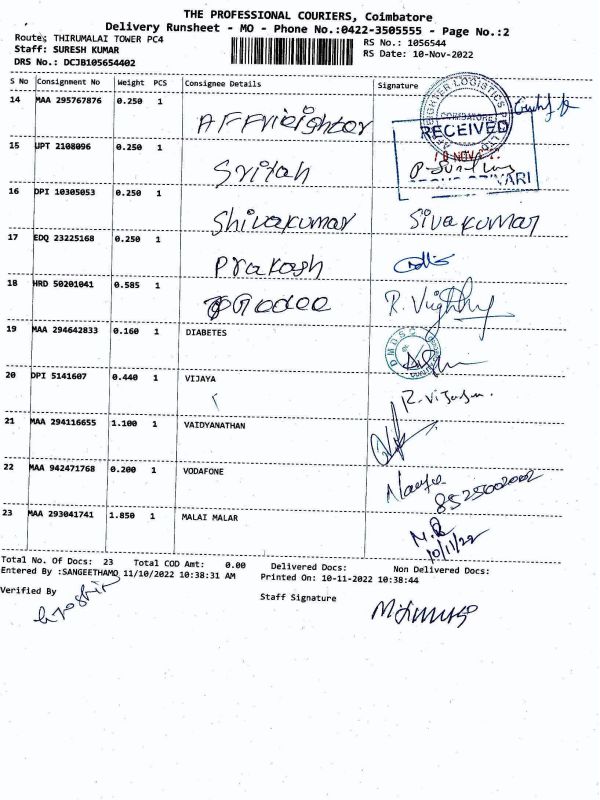 THE PROFESSIONAL COURIERS, Coimbatore
Delivery Runsheet - MO - Phone No.:0422-3505555 - Page No.:2
Route: THIRUMALAI TOWER PC4
RS No.: 1056544
Staff: SURESH KUMAR
RS Date: 10-Nov-2022
DRS No.: DCJB105654402
S No Consignment No Weight PCS Consignee Details Signature
14 MAA 295767876 0.250 1 AFFrieighter
RECEIVED
15 UPT 2108096 0.250 1 Sritah
16 DPI 10305053 0.250 1 Shivakumar Sivakumar
17 EDQ 23225168 0.250 1 Prakash
18 HRD 50201041 0.585 1
19 MAA 294642833 0.160 1 DIABETES
20 DPI 5141607 0.440 1 VIJAYA
21 MAA 294116655 1.100 1 VAIDYANATHAN
22 MAA 942471768 0.200 1 VODAFONE
23 MAA 293041741 1.850 1 MALAI MALAR
10/11/22
Total No. Of Docs: 23 Total COD Amt: 0.00 Delivered Docs: Non Delivered Docs:
Entered By :SANGEETHAMO 11/10/2022 10:38:31 AM Printed On: 10-11-2022 10:38:44
Verified By
Staff Signature